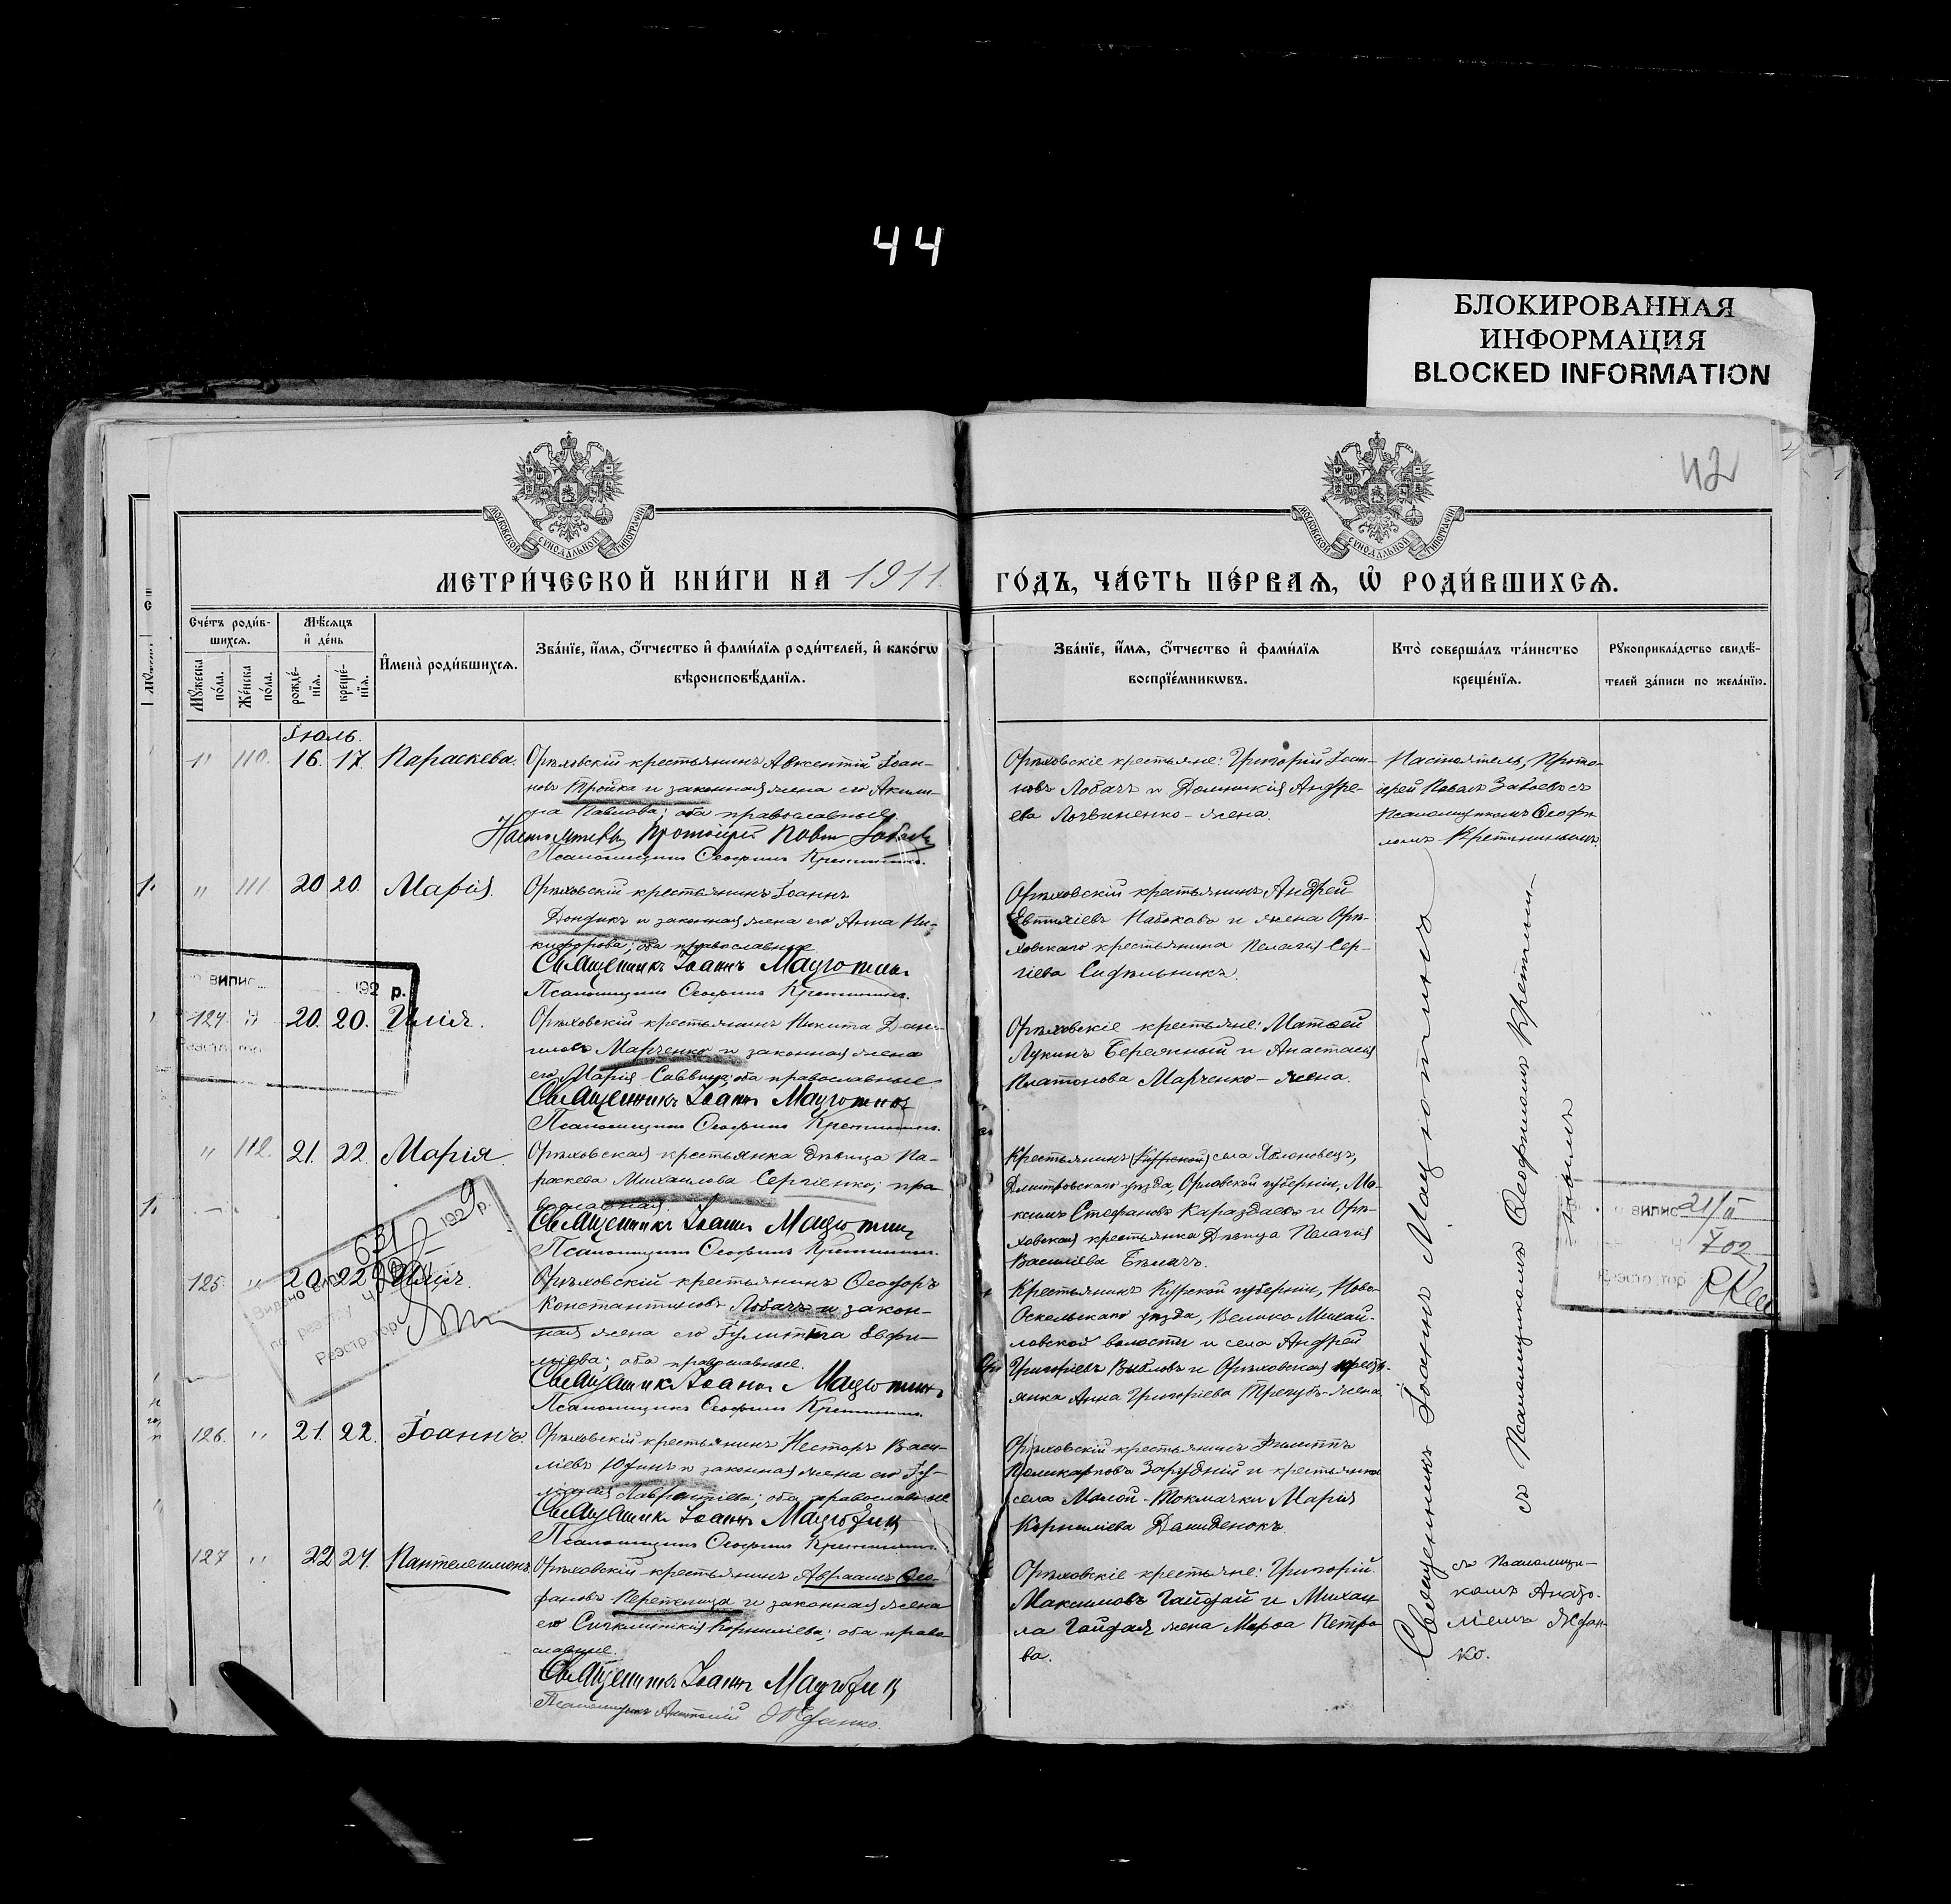 44
БЛОКИРОВАННАЯ
ИНФОРМАЦИЯ
BLOCKED INFORMATION
42
МОСКОВСКОЙ СѴНОДАЛЬНОЙ ТИПОГРАФІИ
МОСКОВСКОЙ СѴНОДАЛЬНОЙ ТИПОГРАФІИ
МЕТРИ́ЧЕСКОЙ КНИ́ГИ НА 1911
ГО́ДЪ, ЧА́СТЬ ПЕ́РВАЯ, Ѡ҆ РОДИ́ВШИХСѦ.
Сче́тъ роди́в-
шихсѧ.
Мꙋ́жеска по́ла.
Же́нска по́ла.
Мѣ́сѧцъ
и҆ де́нь
рожде́-
нїѧ.
креще́-
нїѧ.
И҆мена̀ роди́вшихсѧ.
Зва́нїе, и҆́мѧ, ѻ҆́тчество и҆ фами́лїѧ роди́телей, и҆ како́гѡ
вѣроисповѣ́данїѧ.
Зва́нїе, и҆́мѧ, ѻ҆́тчество и҆ фами́лїѧ
воспрїе́мникѡвъ.
Кто̀ соверша́лъ та́инство
креще́нїѧ.
Рꙋкоприкла́дство свидѣ́-
телей за́писи по жела́нїю.
Іюль.
" 110. 16. 17. Параскева.
Орѣховскій крестьянинъ Авксентій Іоан-
новъ Тройка и законная жена его Акили-
на Павлова; оба православные.
Настоятель Протоіерей Павел
Псаломщикъ Ѳеофилъ Кретининъ.
Орѣховскіе крестьяне: Григорій Іоан-
новъ Лобачъ и Домникія Андре-
ева Логвиненко - жена.
Настоятель, Прото-
іерей Павелъ съ
псаломщикомъ Ѳеофи-
ломъ Кретининымъ
" 111. 20 20. Марія.
Орѣховскій крестьянинъ Іоаннъ
Дондикъ и законная жена его Анна Ни-
кифорова; оба православные
Священникъ Іоаннъ
Псаломщикъ Ѳеофилъ Кретининъ.
Орѣховскій крестьянинъ Андрей
Евтихіевъ Набоковъ и жена Орѣ-
ховскаго крестьянина Пелагія Сер-
гіева Сидѣльникъ.
випис
192 р.
Реэстратор
124. " 20. 20. Илія.
Орѣховскій крестьянинъ Никита Дані-
иловъ Марченко и законная жена
его Марія Саввина; оба православные
Священникъ Іоаннъ
Псаломщикъ Ѳеофилъ Кретининъ.
Орѣховскіе крестьяне: Матѳей
Лукинъ Бережный и Анастасія
Платонова Марченко - жена.
" 112. 21. 22. Марія.
Орѣховская крестьянка дѣвица Па-
раскева Михаилова Сергіенко; пра-
вославная.
Священникъ Іоаннъ
Псаломщикъ Ѳеофилъ Кретининъ.
Крестьянинъ села Яблоновецъ,
Дмитровскаго уѣзда, Орловской губерніи, Ма-
ксимъ Стефановъ Караздаевъ и Орѣ-
ховская крестьянка дѣвица Пелагія
Василіева Бѣлачъ.
Видано 631 1929 р.
по реэстру
Реэстратор
125. " 20. 22. Илія.
Орѣховскій крестьянинъ Ѳеодоръ
Константиновъ Лобачъ и закон-
ная жена его Іулитта Евфи-
міева; оба православные.
Священникъ Іоаннъ
Псаломщикъ Ѳеофилъ Кретининъ.
Крестьянинъ Курской губерніи, Ново-
Оскольскаго уѣзда, Велико Михай-
ловской волости и села Андрей
Григоріевъ и Орѣховская крестья-
янка Анна Григоріева Трегубъ - жена.
126. " 21. 22. Іоаннъ.
Орѣховскій крестьянинъ Несторъ Васи-
ліевъ Юдинъ и законная жена его Іу-
ліанія Лаврентіева; оба православные
Священникъ Іоаннъ
Псаломщикъ Ѳеофилъ Кретининъ.
Орѣховскій крестьянинъ Филиппъ
Поликарповъ Зарудній и крестьянка
села Малой-Токмачки Марія
Корниліева Даниденокъ.
127 " 22 24. Пантелеимонъ.
Орѣховскій крестьянинъ Авраамъ Ѳео-
фановъ Перепелица и законная жена
его Синклитикія Корниліева; оба право-
славные.
Священникъ Іоаннъ
Псаломщикъ Анатолій
Орѣховскіе крестьяне: Григорій
Максимовъ Гайдай и Михаи-
ла Гайдая жена Марѳа Петро-
ва.
Священникъ Іоаннъ
съ Псаломщикомъ Ѳеофиломъ Кретини-
нымъ
съ псаломщи-
комъ Анато-
ліемъ
ко.
випис 21/II
702
Реэстратор